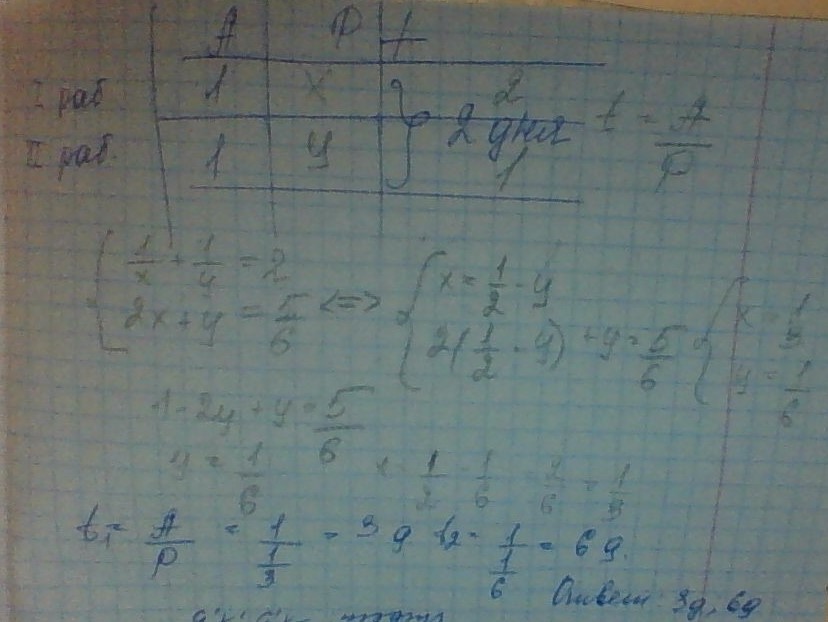 A P t
I раб 1 x 2
2 дня t = A/P
II раб. 1 y 1
{ 1/x + 1/y = 2
2x + y = 5/6 <=> { x = 1/2 - y
2(1/2 - y) + y = 5/6 { x = 1/3
y = 1/6
1 - 2y + y = 5/6
y = 1/6 1/2 1/6 1/3
t₁ = A/P = 1/(1/3) = 3 д t₂ = 1/(1/6) = 6 д.
Ответ 3д, 6д